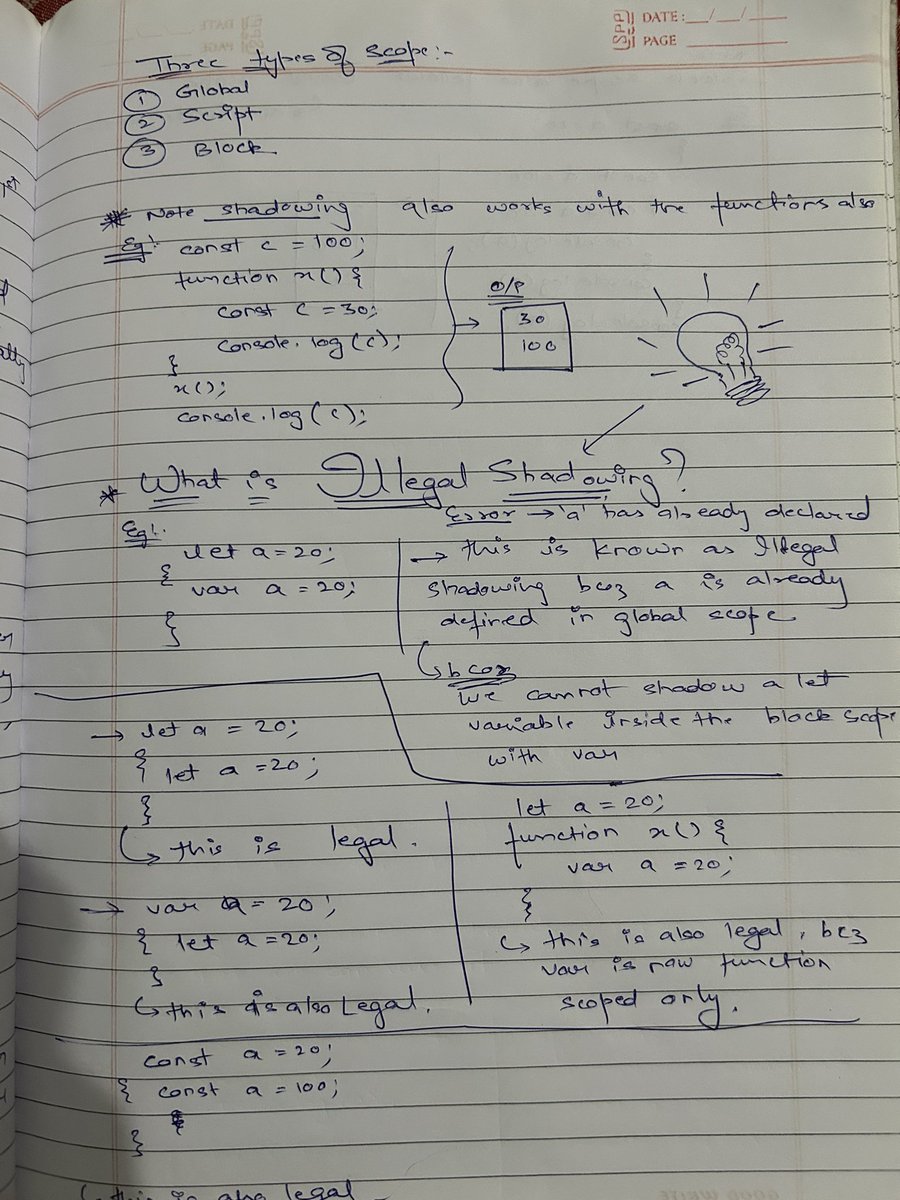 DATE: __/__/__
PAGE
Three types of scope:-
① Global
② Script
③ Block
* Note shadowing also works with the functions also
Eg:- const c = 100;
function x() {
const c = 30;
console.log(c);
}
x();
console.log(c);
O/P
30
100
* What is Illegal Shadowing?
Eg:-
let a = 20;
{
var a = 20;
}
Error → 'a' has already declared
→ this is known as Illegal
shadowing bcoz a is already
defined in global scope
bcoz
we cannot shadow a let
variable inside the block scope
with var
→ let a = 20;
{ let a = 20;
}
↳ this is legal.
→ var a = 20;
{ let a = 20;
}
↳ this is also Legal.
let a = 20;
function x() {
var a = 20;
}
↳ this is also legal, bcz
var is now function
scoped only.
const a = 20;
{ const a = 100;
}
↳ this is also legal